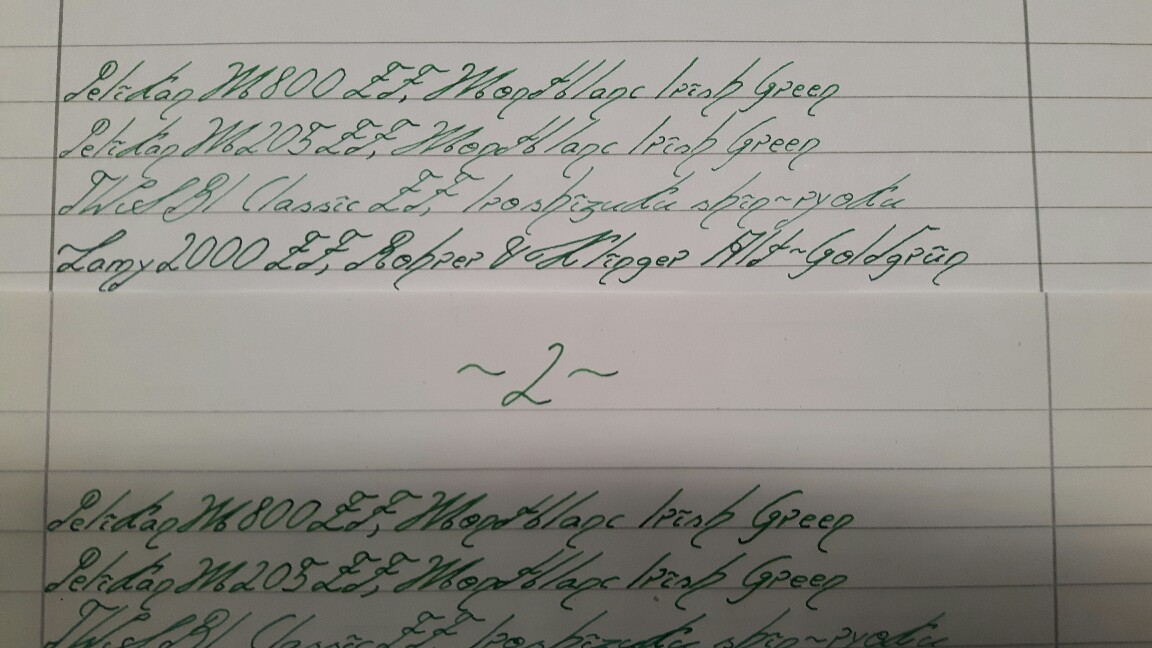 Pelikan M800 EF, Montblanc Irish Green
Pelikan M205 EF, Montblanc Irish Green
TWSBI Classic EF, Iroshizuku shin-ryoku
Lamy 2000 EF, Rohrer & Klinger Alt-Goldgrün
~2~
Pelikan M800 EF, Montblanc Irish Green
Pelikan M205 EF, Montblanc Irish Green
TWSBI Classic EF Iroshizuku shin-ryoku